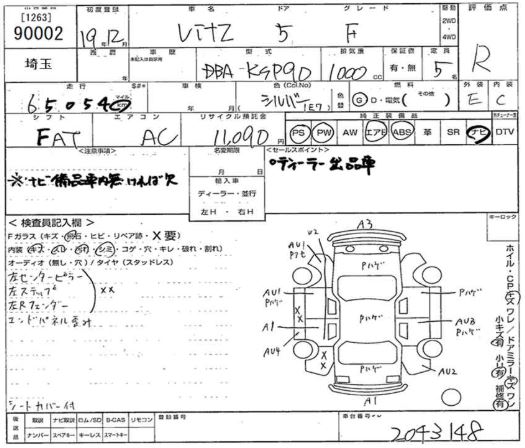 [1263]
90002
初度登録
19年12月
車名
VITZ
ドア
5
グレード
F
駆動
2WD
4WD
評価点
R
埼玉
車歴
型式
DBA-KSP90
排気量
1000 CC
保証書
有・無
定員
5名
走行
65054
マイル
車検
年 月
色(C/No)
シルバー
1E7
色替
燃料
G D・電気(その他)
外装
E
内装
C
シフト
FAT
エアコン
AC
リサイクル預託金
11,090円
純正装備品
PS PW AW エアB ABS 革 SR ナビ DTV
<注意事項>
※ナビ備品車内無ければ欠
名変期限
月 日
輸入車
ディーラー・並行
左H ・ 右H
<セールスポイント>
○ディーラー出品車
<検査員記入欄>
Fガラス(キズ・飛石・ヒビ・リペア跡・X要)
内装(キズ・スレ・汚れ・シミ・コゲ・穴・キレ・破れ・割れ)
オーディオ(無し・穴)/タイヤ(スタッドレス)
左センターピラー
左ステップ
左Rフェンダー
××
エンドパネル歪み
シートカバー付
A3
U2
AU1
Pハゲ
AU1
Pハゲ
A1
AU4
Pハゲ
AU3
Pハゲ
Pハゲ
AU2
A1
キーロック
ホイル・CPキズ ワレ/ドアミラーキズ ワレ
小キズ有 小凹有 補修有
後日
取説
ナビ取説
ロム/SD
B-CAS
リモコン
ナンバー
スペアキー
キーレス
スマートキー
登録番号
車台番号
2043148